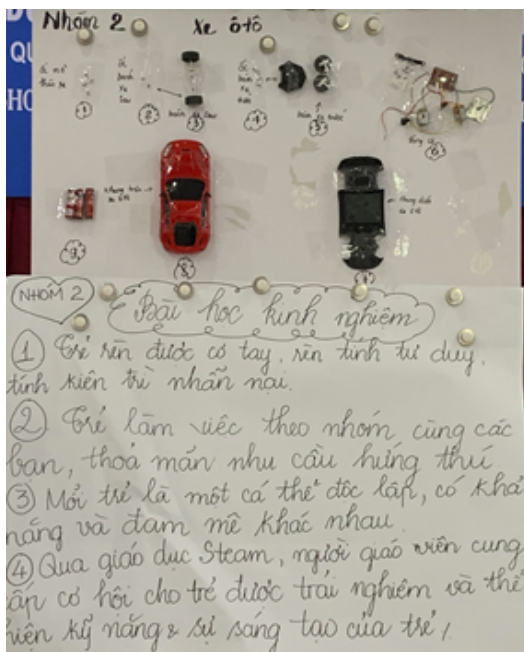 QU
HO
Nhóm 2 Xe ôtô
Ốc
bánh
xe
sau
bánh xe sau
Ốc
bánh
xe
bánh xe trước
1
2
3
4
5
6
Khung trên
xe ôtô
9
8
NHÓM 2
Bài học kinh nghiệm
1 Trẻ rèn được cơ tay, rèn tính tư duy,
tính kiên trì nhẫn nại.
2 Trẻ làm việc theo nhóm cùng các
bạn, thoả mãn nhu cầu hứng thú
3 Mỗi trẻ là một cá thể độc lập, có khả
năng và đam mê khác nhau
4 Qua giáo dục Steam, người giáo viên cung
ấp cơ hội cho trẻ được trải nghiệm và thể
hiện kỹ năng & sự sáng tạo của trẻ /.